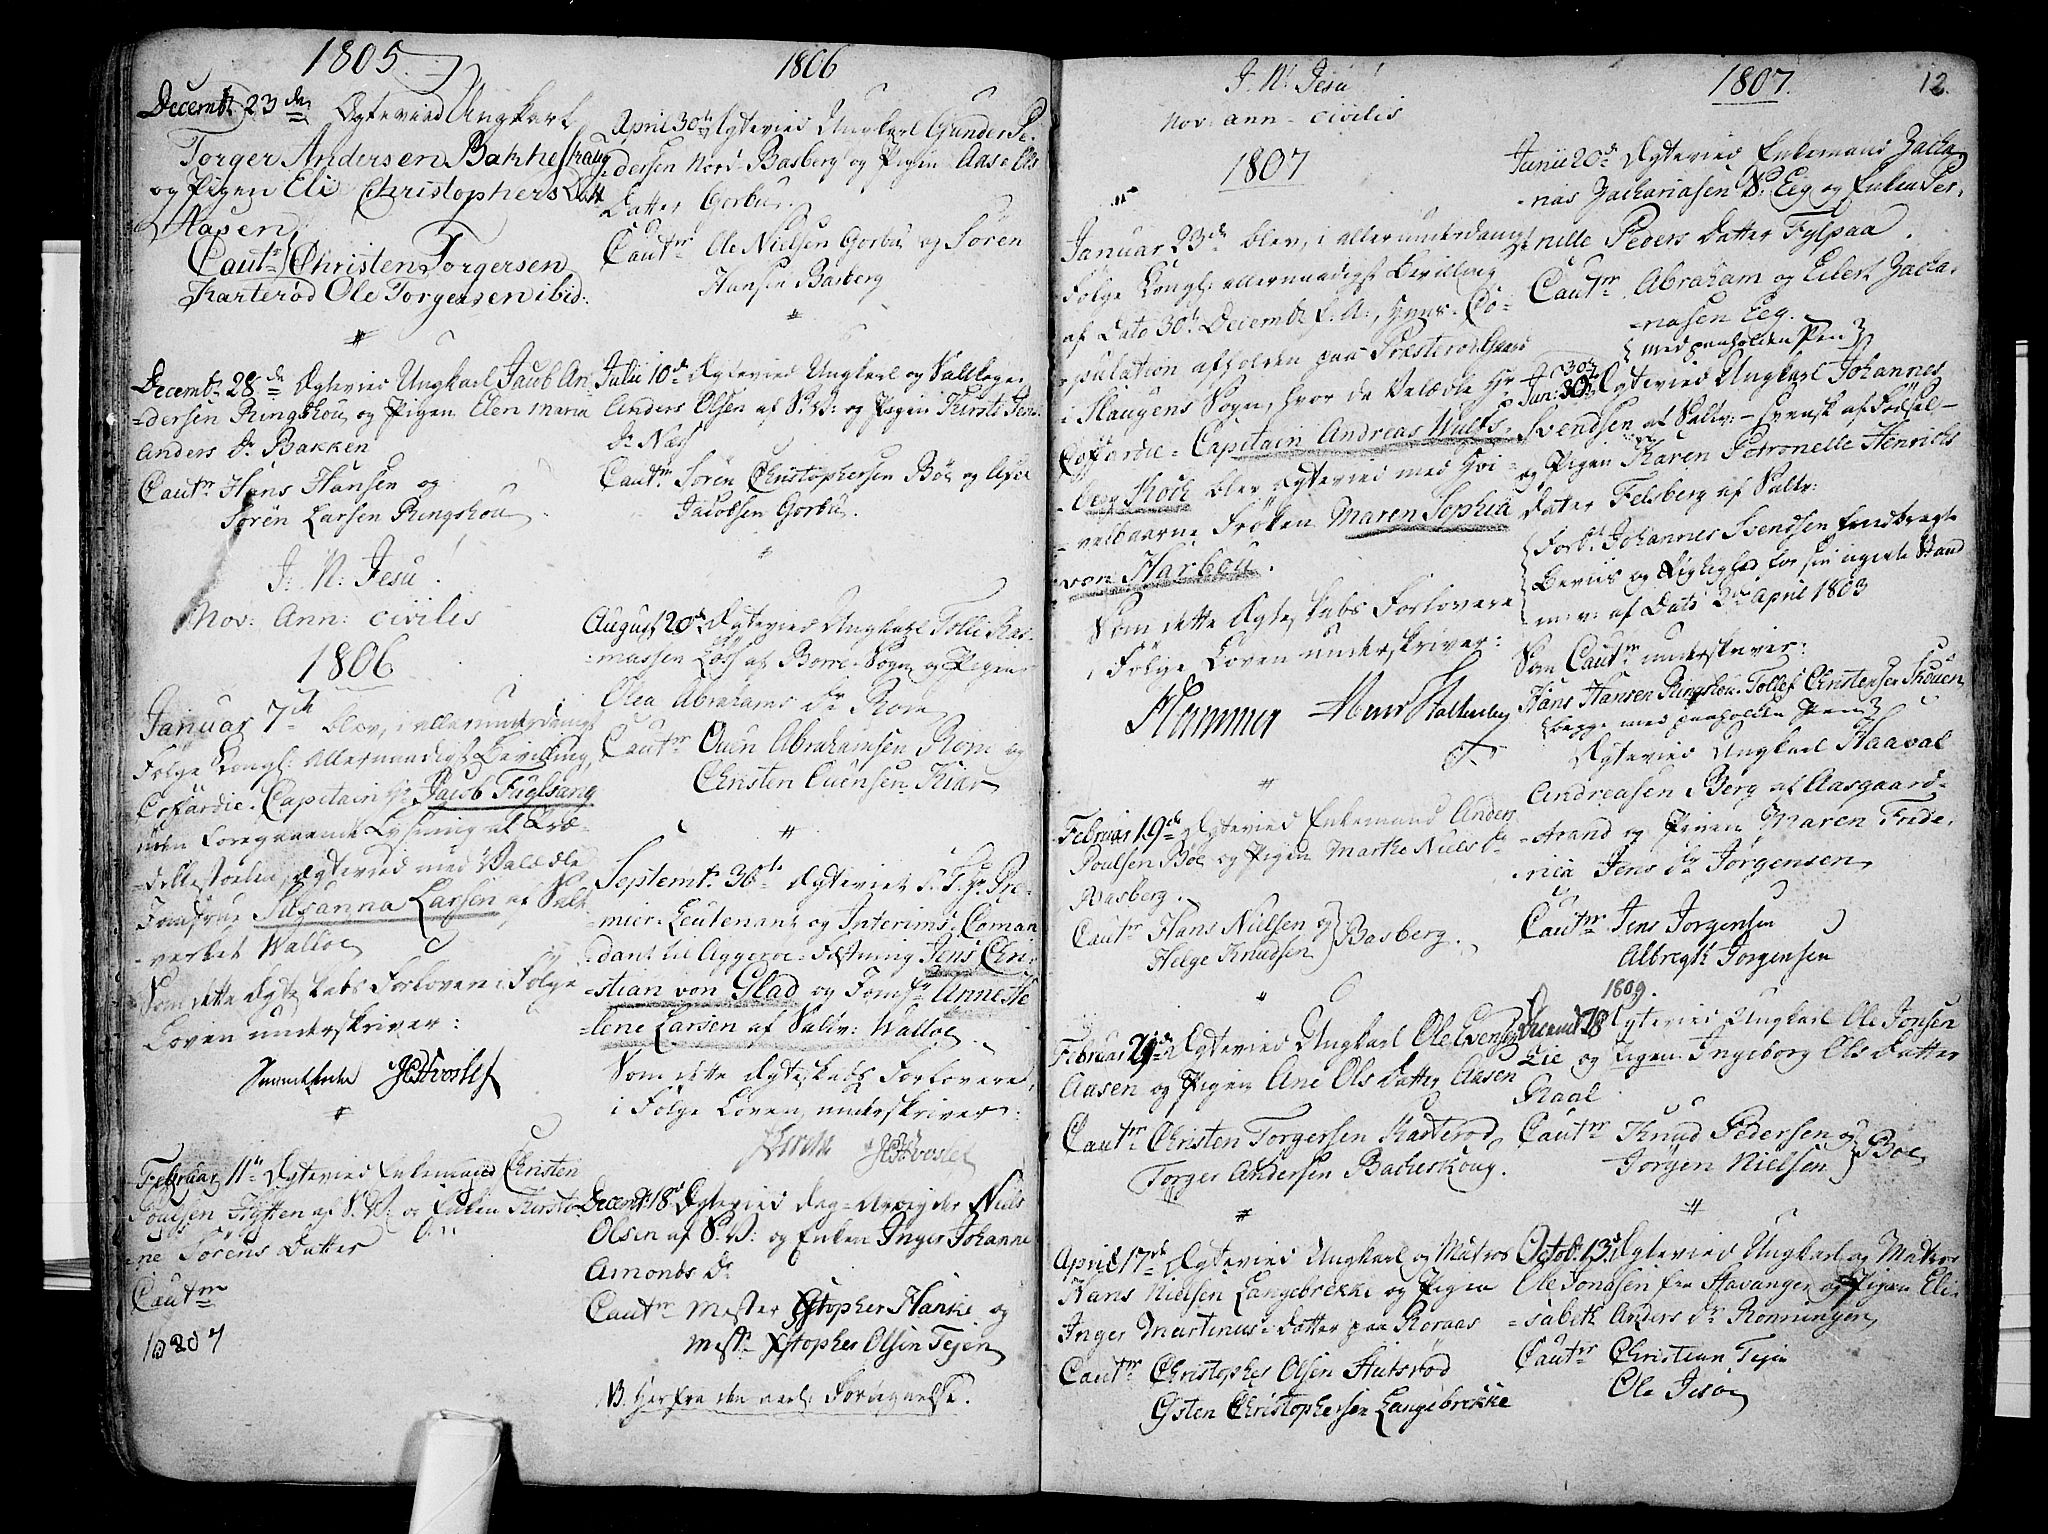 1805
Decembr 23de Ægteviet Ungkarl
Torger Andersen Bakkeskaug
og Pigen Eli Christophers Datt
Aasen
Cautr Christen Torgersen
Karterød Ole Torgersen ibid:
Decembr 28de Ægteviet Ungkarl Jacob An-
dersen Ringshou og Pigen Elen Maria
Anders Dr Bakken
Cautr Hans Hansen og
Sørén Larsen Ringshou
J: N: Jesu!
Nov: Ann: Civilis
1806
Januar 7de blev, i allerunderdanigst
Følge Kongl: Allernaadigst Bevilling,
Cofardie-Capitain Hr Jacob Fuglsang
uden foregaaende Lysning af Præ-
dikestoelen, Ægteviet med Velædle
Jomfrue Susanna Larsen af Salt-
verket Walløe
Som dette Ægteskabs Forlovere i Følge
Loven underskriver:
Februar 11te Ægteviet Enkemand Christen
Poulsen Hytten af S: V: og Enken Kirsti-
ne Sørens Datter
Cautr
1806
April 30te Ægteviet Ungkarl Gunder Pe-
dersen Nord-Basberg og Pigen Aase Ols
Datter Gorbu.
Cautr Ole Nielsen Gorbu og Søren
Hansen Basberg
Julii 10de Ægteviet Ungkarl og
Anders Olsen af S: V: og Pigen Kirsti Jens
Dr Næs
Cautr Sören Christophersen Böe og
Jacobsen Gorbu.
August 20de Ægteviet Ungkarl Tolli Ras-
massen af Borre-Sogn og Pigen
Olea Abrahams Dr Rom
Cautr Ouen Abrahamsen Rom og
Christen Ouensen Kiær
Septembr 30te Ægteviet S: T: Hr Pre-
mier-Leutenant og Interims-Coman-
dant til Aggeroe-Fæstning Jens Chri-
stian von Glad og Jomfr Anne He-
lene Larsen af Saltv: Walløe
Som dette Ægteskabs Forlovere,
i Følge Loven, underskriver:
Decembr 18de Ægteviet Dag-Arbeyder Niels
Olsen af S: V: og Enken Inger Johanne
Amonds Dr
Cautr Mester Xstopher Hanke og
Mestr Xstopher Olsen Tejen
NB. herfra den aarl: Fortegnelse.
J. N. Jesu!
Nov: ann- civilis
1807
Januar 23de blev, i allerunderdanigst
Følge Kongl: allernaadigst Bevilling
af Dato 30te Decembr f: A:, Hjems-Co-
pulation afholden paa Præsterødgaard
i Slaugens Sogn, hvor da Velædle Hr
Cofardie-Capitain Andreas Wulfs-
berg Koch blev Ægteviet med Høi-
velbaarne Frøken Maren Sophia
von Harbou.
Som dette Ægteskabs Forlovere
i Følge Loven underskriver:
Hammer
Februar 19de Ægteviet Enkemand Anders
Poulsen Böe og Pigen Marthe Niels Dr
Basberg.
Cautr Hans Nielsen og
Helge Knudsen } Basberg.
Februar 21de Ægteviet Ungkarl Ole Evensen
Aasen og Pigen Ane Ols Datter Aasen
Cautr Christen Torgersen Karterød
Torger Andersen Bakeskoug.
April 17de Ægteviet Ungkarl og Matros
Hans Nielsen Langebrekke og Pigen
Inger Martinus-Datter paa Roraas
Cautr Christopher Olsen Slutsrød
Gsten Christophersen Langebrekke
1807.
12.
Junii 20de Ægteviet Enkemand Zacha-
rias Zachariasen N: Eeg og Enken Per-
nille Peders Datter Fylpaa.
Cautr Abraham og Eilert Zacha-
riasen Eeg.
med paaholden Pen
Jan: 30te Ægteviet Ungkarl Johannes
Svendsen af Saltv:- Svensk af Fødsel-
og Pigen Karen Petronelle Henrichs
Datter Felsberg af Saltv:
Forbt Johannes Svendsen frembragte
Beviis og Rigtighed for sin ugivte Stand
m: v: af Dato 3de April 1803
Som Cautr underskriver:
Hans Hansen Ringshou. Tollef Christensen Skouen
begge med paaholden Pen
Ægteviet Ungkarl Haaval
Andreasen Berg af Aasgaard-
strand og Pigen Maren Fride-
rica Jens Dr Jørgensen
Cautr Jens Jorgensen
Albregt Jorgensen
1809.
Decembr 28 Ægteviet Ungkarl Ole Jonsen
Lie og Pigen Ingeborg Ols Datter
Raal
Cautr Knud Pedersen og
Jörgen Nielsen } Böe
Octobr 13de Ægteviet Ungkarl og Matros
Ole Jonasen fra Stavanger og Pigen Eli-
sabeth Anders Dr Ronningen
Cautr Christian Tejen
Ole Jesöe